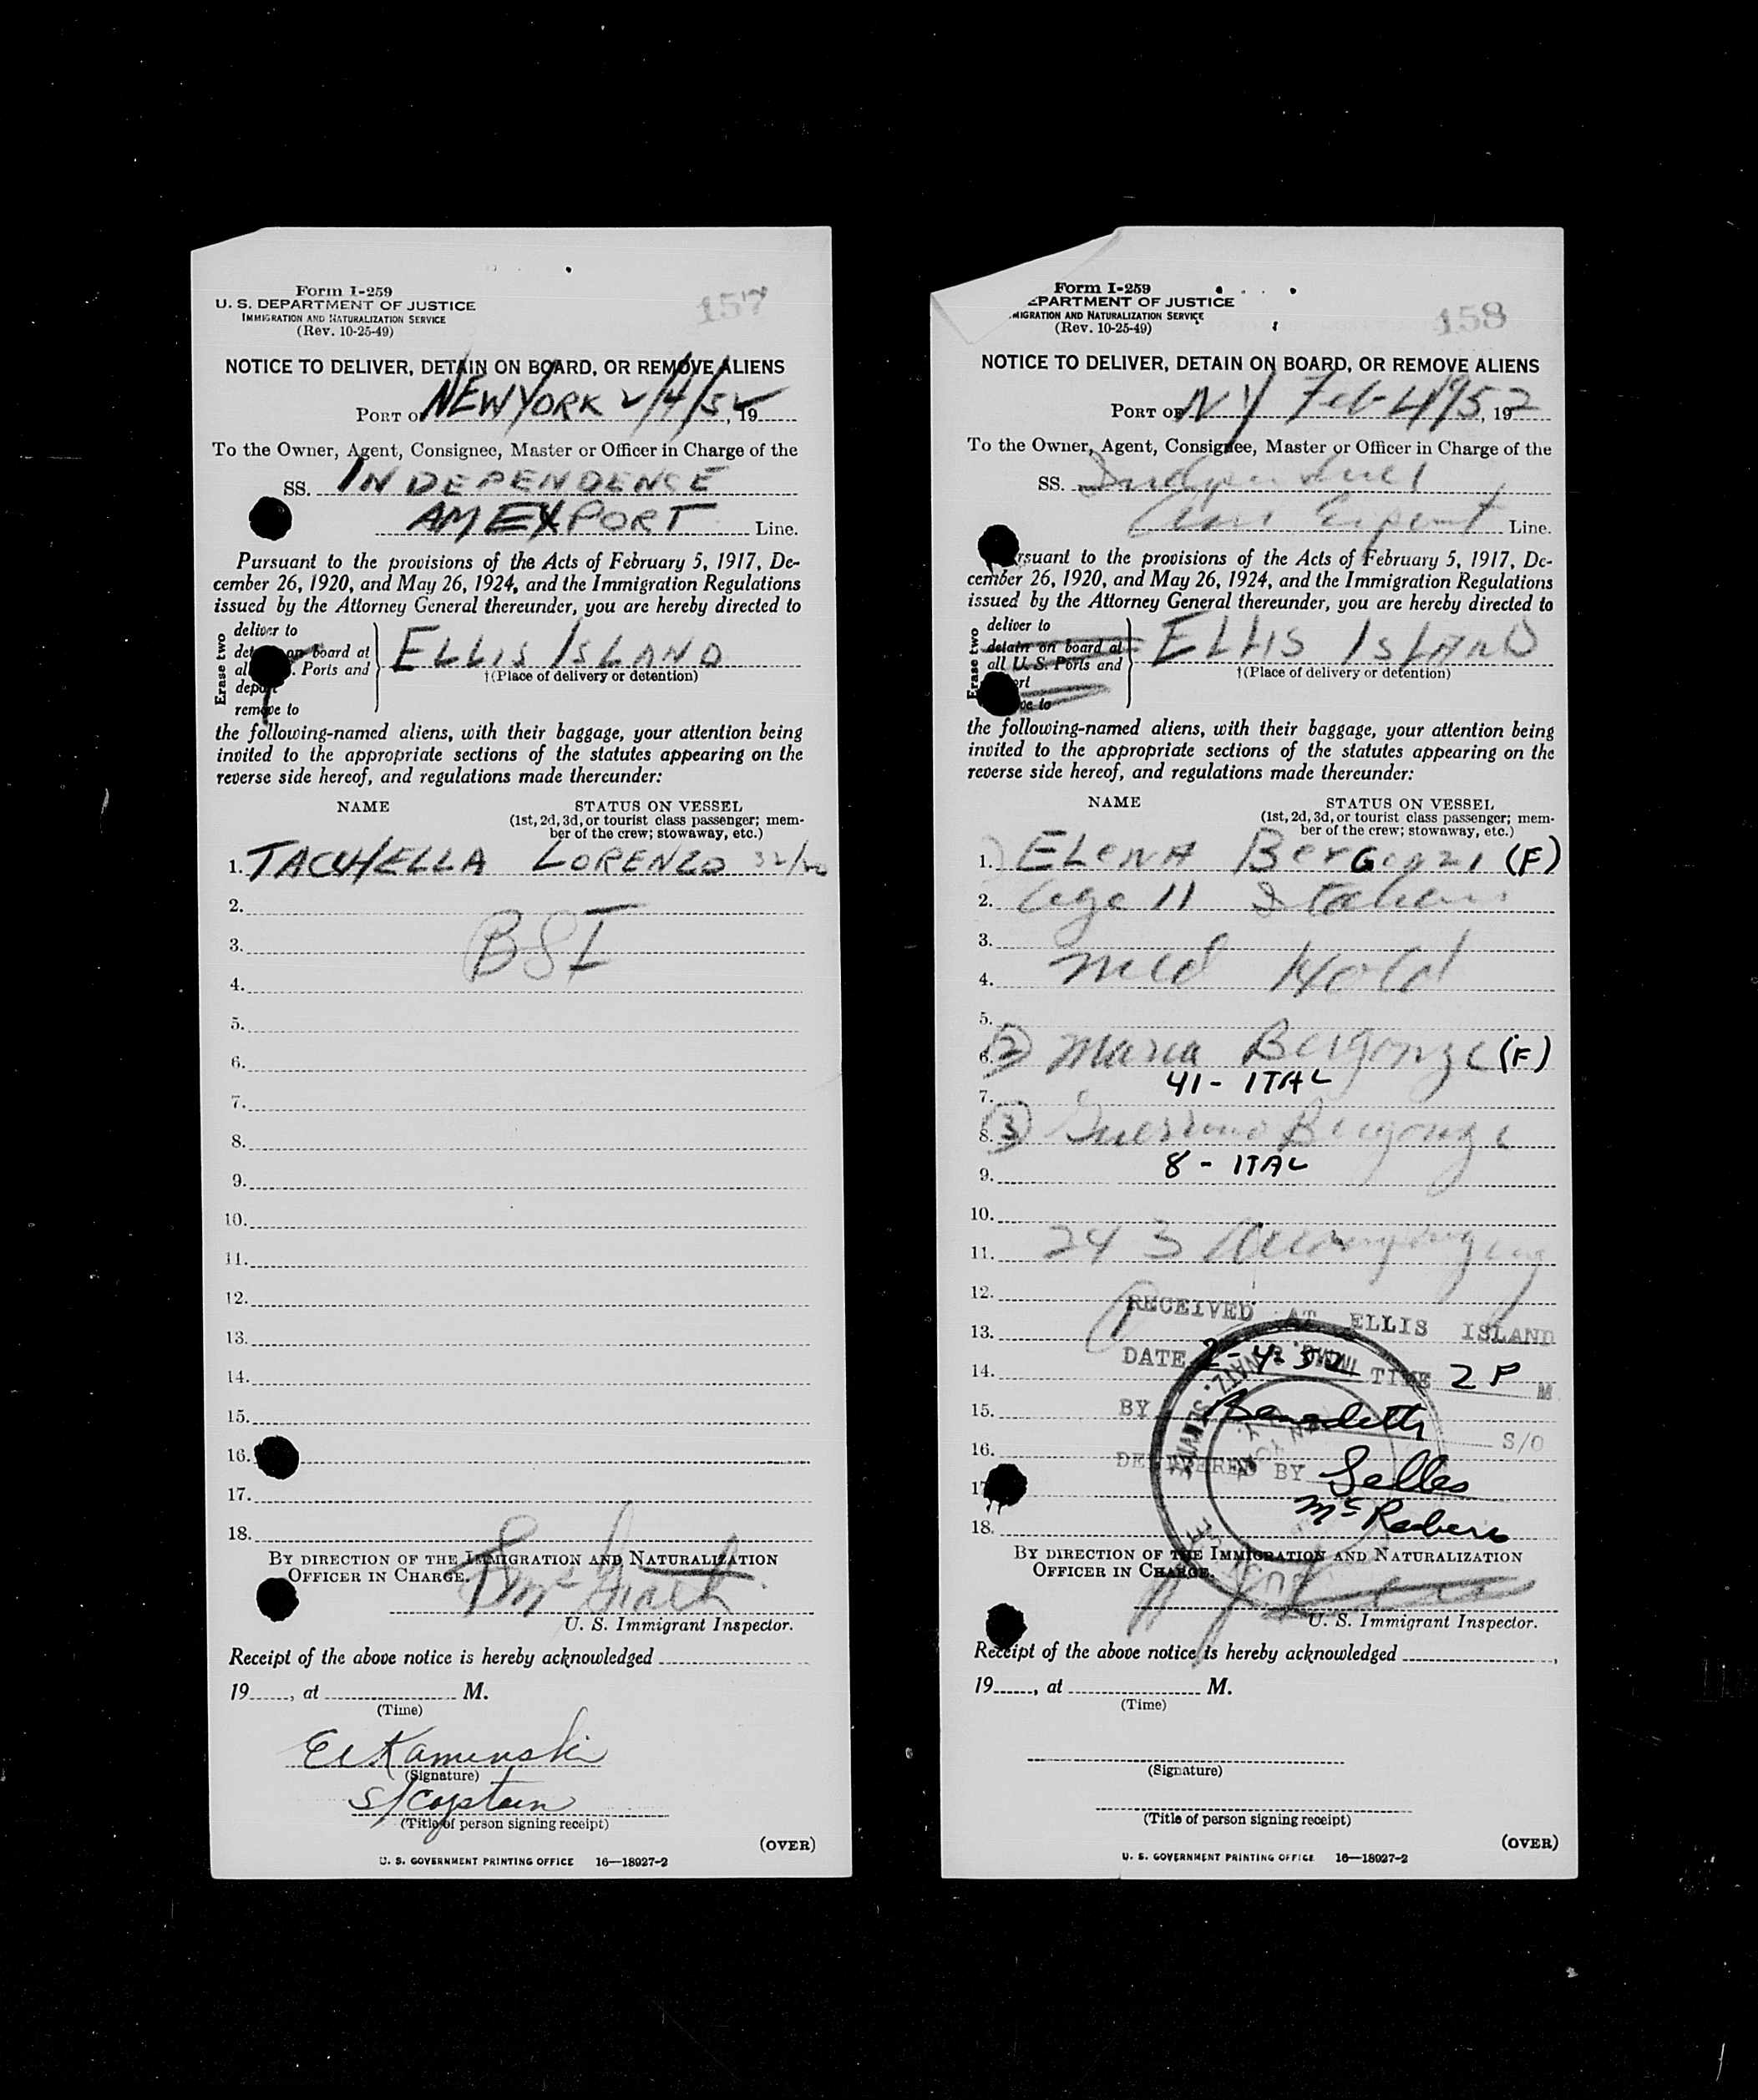 Form I-259
U. S. DEPARTMENT OF JUSTICE
IMMIGRATION AND NATURALIZATION SERVICE
(Rev. 10-25-49)
157
NOTICE TO DELIVER, DETAIN ON BOARD, OR REMOVE ALIENS
PORT OF NEW YORK 2/4/52, 19
To the Owner, Agent, Consignee, Master or Officer in Charge of the
SS. INDEPENDENCE
AM EXPORT Line.
Pursuant to the provisions of the Acts of February 5, 1917, De-
cember 26, 1920, and May 26, 1924, and the Immigration Regulations
issued by the Attorney General thereunder, you are hereby directed to
Erase two
deliver to
on board at
all . Ports and
depo
remove to
ELLIS ISLAND
†(Place of delivery or detention)
the following-named aliens, with their baggage, your attention being
invited to the appropriate sections of the statutes appearing on the
reverse side hereof, and regulations made thereunder:
NAME
STATUS ON VESSEL
(1st, 2d, 3d, or tourist class passenger; mem-
ber of the crew; stowaway, etc.)
1. TACCHELLA LORENZO 32/20
2.
3. BSI
4.
5.
6.
7.
8.
9.
10.
11.
12.
13.
14.
15.
16.
17.
18.
BY DIRECTION OF THE IMMIGRATION AND NATURALIZATION
OFFICER IN CHARGE.
U. S. Immigrant Inspector.
Receipt of the above notice is hereby acknowledged
19, at M.
(Time)
Kaminski
(Signature)
S/Captain
(Title of person signing receipt)
(OVER)
U. S. GOVERNMENT PRINTING OFFICE 16—18027-2
Form I-259
EPARTMENT OF JUSTICE
MIGRATION AND NATURALIZATION SERVICE
(Rev. 10-25-49)
158
NOTICE TO DELIVER, DETAIN ON BOARD, OR REMOVE ALIENS
PORT OF NY Feb 4/95, 192
To the Owner, Agent, Consignee, Master or Officer in Charge of the
SS. Independence
Am Export Line.
rsuant to the provisions of the Acts of February 5, 1917, De-
cember 26, 1920, and May 26, 1924, and the Immigration Regulations
issued by the Attorney General thereunder, you are hereby directed to
Erase two
deliver to
detain on board at
all U. S. Ports and
ort
ve to
ELLIS ISLAND
†(Place of delivery or detention)
the following-named aliens, with their baggage, your attention being
invited to the appropriate sections of the statutes appearing on the
reverse side hereof, and regulations made thereunder:
NAME
STATUS ON VESSEL
(1st, 2d, 3d, or tourist class passenger; mem-
ber of the crew; stowaway, etc.)
1. ELENA BERGONZI (F)
2. age 11 Italian
3.
4. med Hold
5.
6. 2 Maria Bergonzi (F)
41 - ITAL
7.
8. 3 Bergonzi
8 - ITAL
9.
10.
11. 2 & 3 Accompanying
12.
RECEIVED AT ELLIS ISLAND
13.
DATE 2-4-52 TIME 2 P M
14.
15. BY Benedetti S/O
16.
DELIVERED BY Selles
17.
McRoberts
18.
BY DIRECTION OF THE IMMIGRATION AND NATURALIZATION
OFFICER IN CHARGE.
U. S. Immigrant Inspector.
Receipt of the above notice is hereby acknowledged,
19, at M.
(Time)
(Signature)
(Title of person signing receipt)
(OVER)
U. S. GOVERNMENT PRINTING OFFICE 16—18027-2